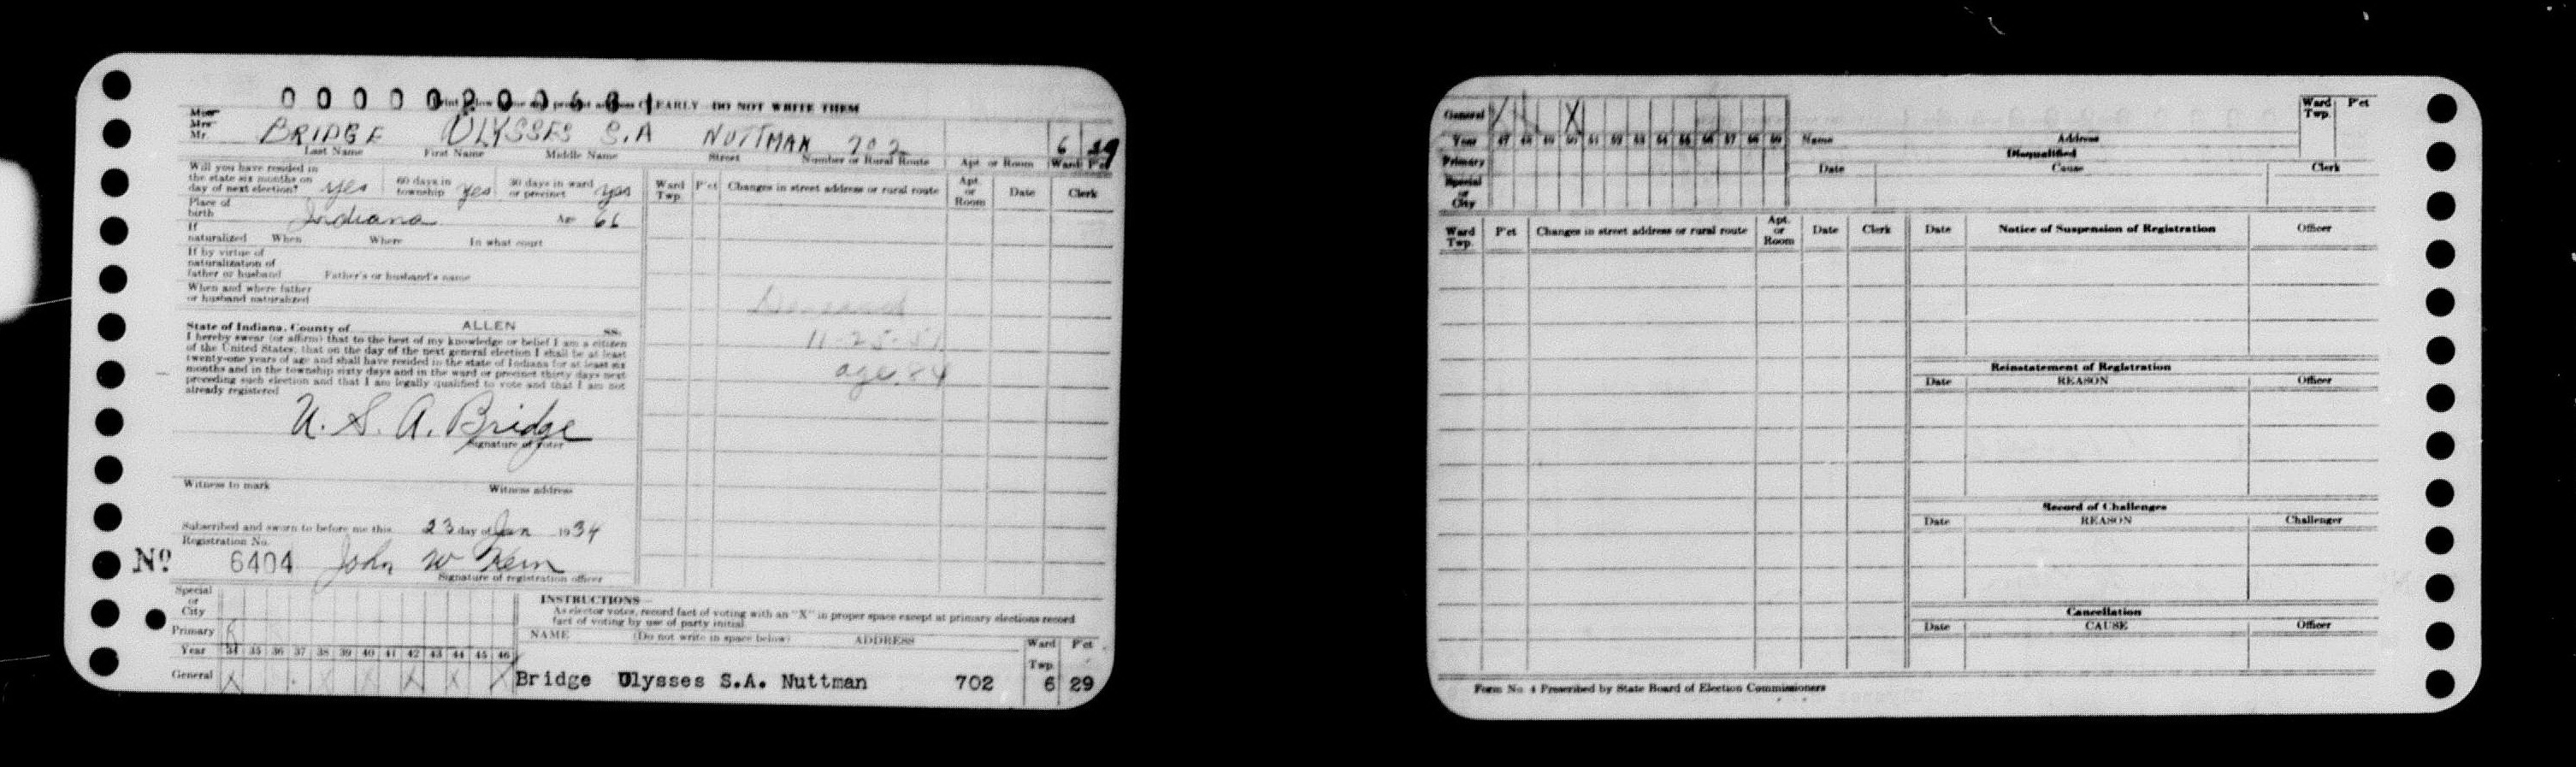 Print below name and present address CLEARLY DO NOT WRITE THEM
Miss
Mrs
Mr. BRIDGE ULYSSES S.A NUTTMAN 702 6 29
Last Name First Name Middle Name Street Number or Rural Route Apt or Room Ward P'ct
Will you have resided in
the state six months on
day of next election? yes 60 days in township yes 30 days in ward or precinct yes
Place of
birth Indiana Age
If
naturalized When Where In what court
If by virtue of
naturalization of
father or husband Father's or husband's name
When and where father
or husband naturalized
State of Indiana, County of ALLEN ss.
I hereby swear (or affirm) that to the best of my knowledge or belief I am a citizen
of the United States; that on the day of the next general election I shall be at least
twenty-one years of age and shall have resided in the state of Indiana for at least six
months and in the township sixty days and in the ward or precinct thirty days next
preceding such election and that I am legally qualified to vote and that I am not
already registered
U. S. A. Bridge
Signature of voter
Witness to mark Witness address
Subscribed and sworn to before me this 23 day of Jan 1934
Registration No.
Nº 6404 John W Kern
Signature of registration officer
Ward Twp. P'ct Changes in street address or rural route Apt. or Room Date Clerk
Deceased
age 84
Special
or
City
Primary R
Year 34 35 36 37 38 39 40 41 42 43 44 45 46
General X X X X
INSTRUCTIONS
As elector votes, record fact of voting with an "X" in proper space except at primary elections record
fact of voting by use of party initial.
NAME (Do not write in space below) ADDRESS Ward Twp. P'ct
Bridge Ulysses S.A. Nuttman 702 6 29
General X
Year 47 48 49 50 51 52 53 54 55 56 57 58 59
Primary
Special
or
City
Name Address Ward Twp. P'ct
Disqualified
Date Cause Clerk
Ward Twp. P'ct Changes in street address or rural route Apt. or Room Date Clerk
Date Notice of Suspension of Registration Officer
Reinstatement of Registration
Date REASON Officer
Record of Challenges
Date REASON Challenger
Cancellation
Date CAUSE Officer
Form No 4 Prescribed by State Board of Election Commissioners